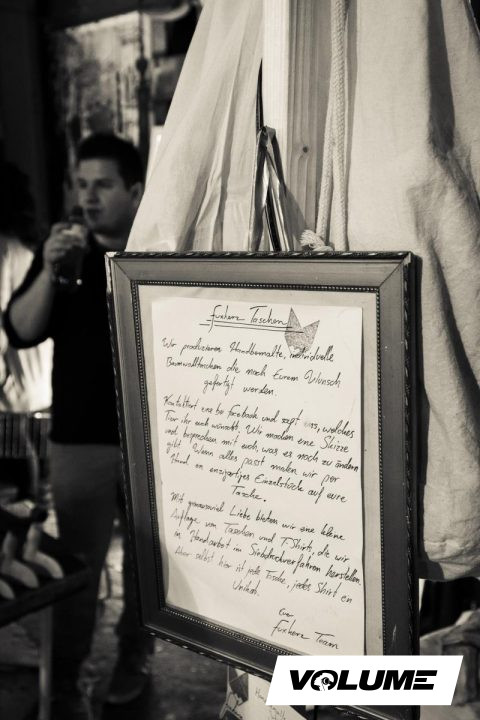 füxherz Taschen
Wir produzieren Handbemalte, individuelle
Baumwolltaschen die nach Eurem Wunsch
gefertigt werden.
Kontaktiert uns bei facebook und sagt uns, welches
Tier ihr euch wünscht. Wir machen eine Skizze
und besprechen mit euch, was es noch zu ändern
gibt. Wenn alles passt malen wir per
Hand ein einzigartiges Einzelstück auf eure
Tasche.
Mit genausoviel Liebe bieten wir eine kleine
Auflage von Taschen und T-Shirts, die wir
in Handarbeit im Siebdruckverfahren herstellen.
Aber selbst hier ist jede Tasche, jedes Shirt ein
Unikat.
Euer
füxherz Team
VOLUME